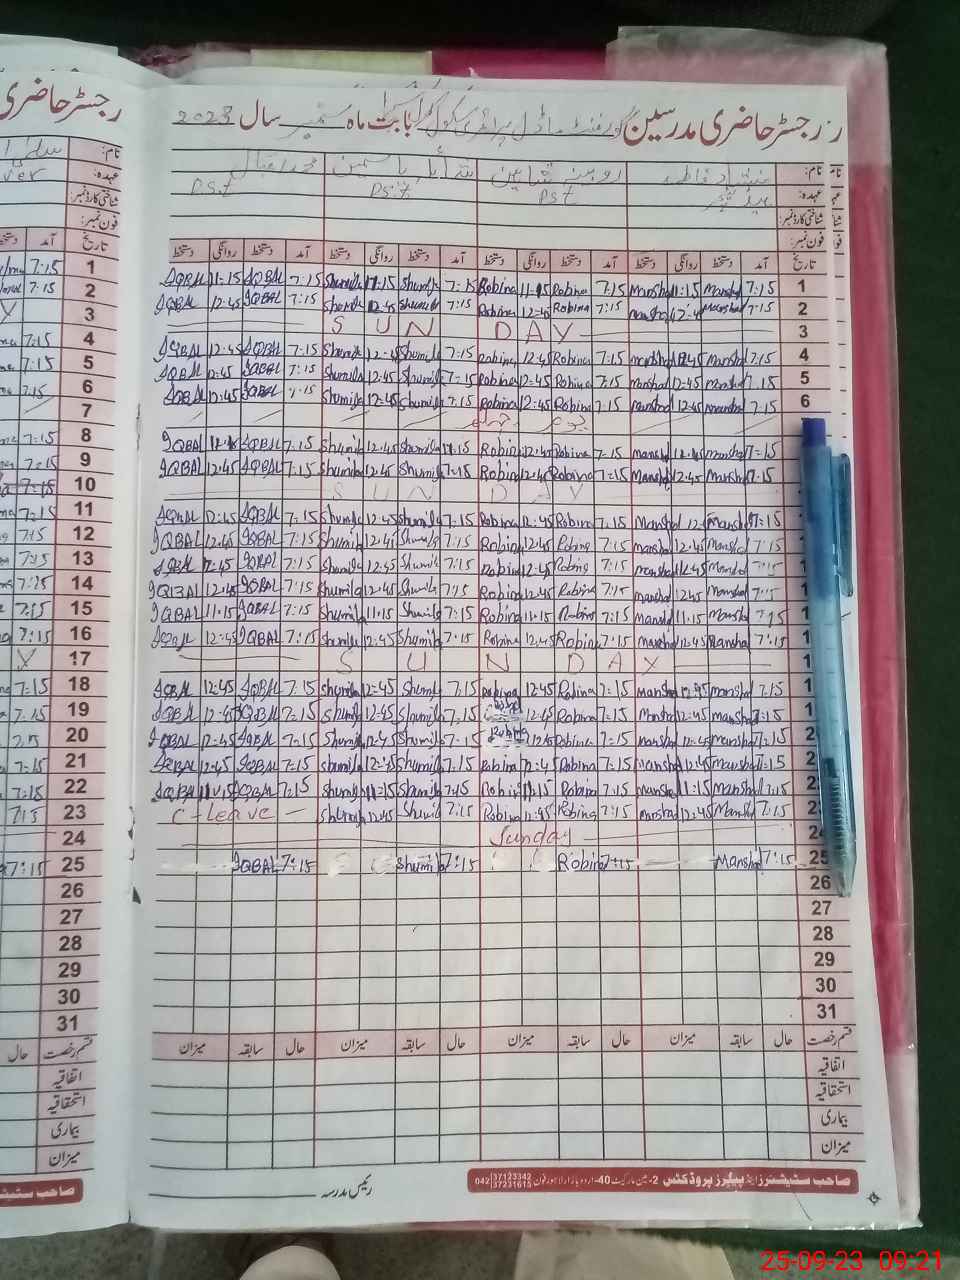 رجسٹر حاضری مدرسین گورنمنٹ ماڈل پرائمری سکول بابت ماہ ستمبر سال 2023
نام: روبینہ شاہین شمائلہ یاسمین محمد اقبال
عہدہ: ہیڈ ٹیچر PST P.S.T P.S.T
شناختی کارڈ نمبر:
فون نمبر:
تاریخ آمد دستخط روانگی دستخط آمد دستخط روانگی دستخط آمد دستخط روانگی دستخط آمد دستخط روانگی دستخط
1 7:15 Mansha 11:15 Mansha 7:15 Robina 11:15 Robina 7:15 Shumila 11:15 Shumila 7:15 IQBAL 11:15 IQBAL
2 7:15 Mansha 12:45 Mansha 7:15 Robina 12:45 Robina 7:15 Shumila 12:45 Shumila 7:15 IQBAL 12:45 IQBAL
3 SUN DAY
4 7:15 Mansha 12:45 Mansha 7:15 Robina 12:45 Robina 7:15 Shumila 12:45 Shumila 7:15 IQBAL 12:45 IQBAL
5 7:15 Mansha 12:45 Mansha 7:15 Robina 12:45 Robina 7:15 Shumila 12:45 Shumila 7:15 IQBAL 12:45 IQBAL
6 7:15 Mansha 12:45 Mansha 7:15 Robina 12:45 Robina 7:15 Shumila 12:45 Shumila 7:15 IQBAL 12:45 IQBAL
7
8 7:15 Mansha 12:45 Mansha 7:15 Robina 12:45 Robina 7:15 Shumila 12:45 Shumila 7:15 IQBAL IQBAL
9 7:15 Mansha 12:45 Mansha 7:15 Robina 12:45 Robina 7:15 Shumila 12:45 Shumila 7:15 IQBAL 12:45 IQBAL
10 SUN DAY
11 7:15 Mansha 12:45 Mansha 7:15 Robina 12:45 Robina 7:15 Shumila 12:45 Shumila 7:15 IQBAL 12:45 IQBAL
12 7:15 Mansha 12:45 Mansha 7:15 Robina 12:45 Robina 7:15 Shumila 12:45 Shumila 7:15 IQBAL 12:45 IQBAL
13 7:15 Mansha 12:45 Mansha 7:15 Robina 12:45 Robina 7:15 Shumila 12:45 Shumila 7:15 IQBAL 12:45 IQBAL
14 7:15 Mansha 12:45 Mansha 7:15 Robina 12:45 Robina 7:15 Shumila 12:45 Shumila 7:15 IQBAL 12:45 IQBAL
15 7:15 Mansha 11:15 Mansha 7:15 Robina 11:15 Robina 7:15 Shumila 11:15 Shumila 7:15 IQBAL 11:15 IQBAL
16 7:15 Mansha 12:45 Mansha 7:15 Robina 12:45 Robina 7:15 Shumila 12:45 Shumila 7:15 IQBAL 12:45 IQBAL
17 SUN DAY
18 7:15 Mansha 12:45 Mansha 7:15 Robina 12:45 Robina 7:15 Shumila 12:45 Shumila 7:15 IQBAL 12:45 IQBAL
19 7:15 Mansha 12:45 Mansha 7:15 Robina 12:45 7:15 Shumila 12:45 Shumila 7:15 IQBAL 12:45 IQBAL
20 7:15 Mansha 12:45 Mansha 7:15 Robina 12:45 Robina 7:15 Shumila 12:45 Shumila 7:15 IQBAL 12:45 IQBAL
21 7:15 Mansha 12:45 Mansha 7:15 Robina 12:45 Robina 7:15 Shumila 12:45 Shumila 7:15 IQBAL 12:45 IQBAL
22 7:15 Mansha 11:15 Mansha 7:15 Robina 11:15 Robina 7:15 Shumila 11:15 Shumila 7:15 IQBAL 11:15 IQBAL
23 7:15 Mansha 12:45 Mansha 7:15 Robina 12:45 Robina 7:15 Shumila 12:45 Shumila C-leave
24 Sunday
25 7:15 Mansha 7:15 Robina 7:15 Shumila 7:15 IQBAL
26
27
28
29
30
31
قسم رخصت حال سابقہ میزان حال سابقہ میزان حال سابقہ میزان حال سابقہ میزان
اتفاقیہ
استحقاقیہ
بیماری
میزان
رئیس مدرسہ
صاحب سٹیشنرز اینڈ پیپرز پروڈکٹس 2-مین مارکیٹ 40-اردو بازار لاہور فون 042 37123342 37231615
25-09-23 09:21